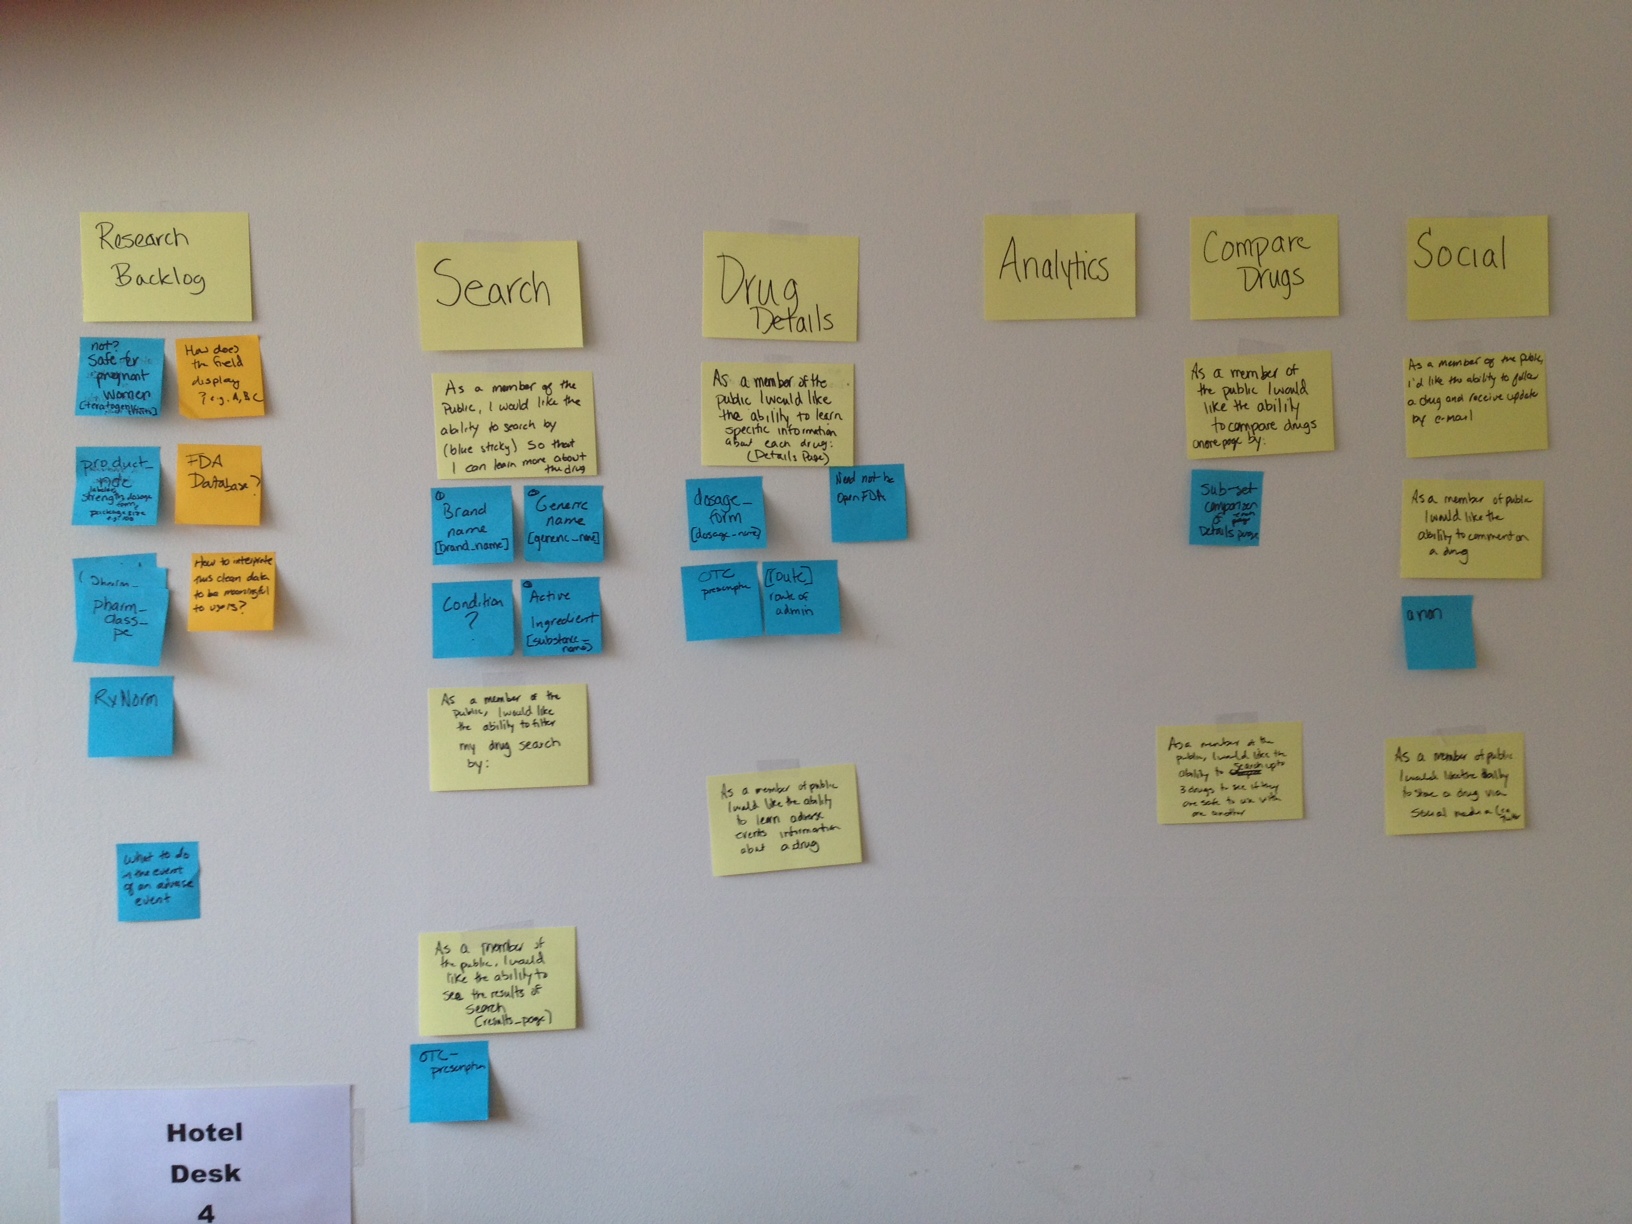 Research
Backlog
not?
Safe for
pregnant
women
How does
the field
display
? e.g. A,B,C
product_
note
strength, dosage
form,
package size
FDA
Database?
pharm_
class_
pe
How to interpret
this clean data
to be meaningful
to users?
RxNorm
What to do
in the event
of an adverse
event
Hotel
Desk
4
Search
As a member of the
Public, I would like the
ability to search by
(blue sticky) So that
I can learn more about
the drug
Brand
name
[brand_name]
Generic
name
Condition
?
Active
Ingredient
[substance_
name]
As a member of the
public, I would like
the ability to filter
my drug search
by:
As a member of
the public, I would
like the ability to
see the results of
search
[results_page]
OTC-
prescription
Drug
Details
As a member of the
public I would like
the ability to learn
specific information
about each drug:
(Details Page)
dosage_
form
[dosage_name]
Need not be
Open FDA
OTC
[route]
route of
admin
As a member of public
I would like the ability
to learn adverse
events information
about a drug
Analytics
Compare
Drugs
As a member of
the public I would
like the ability
to compare drugs
on one page by:
Sub-set
comparison
of
Details page
As a member of the
public, I would like the
ability to search up to
3 drugs to see if they
are safe to use with
one another
Social
As a member of the public,
I'd like the ability to follow
a drug and receive update
by e-mail
As a member of public
I would like the
ability to comment on
a drug
anon
As a member of public
I would like the ability
to share a drug via
Social media